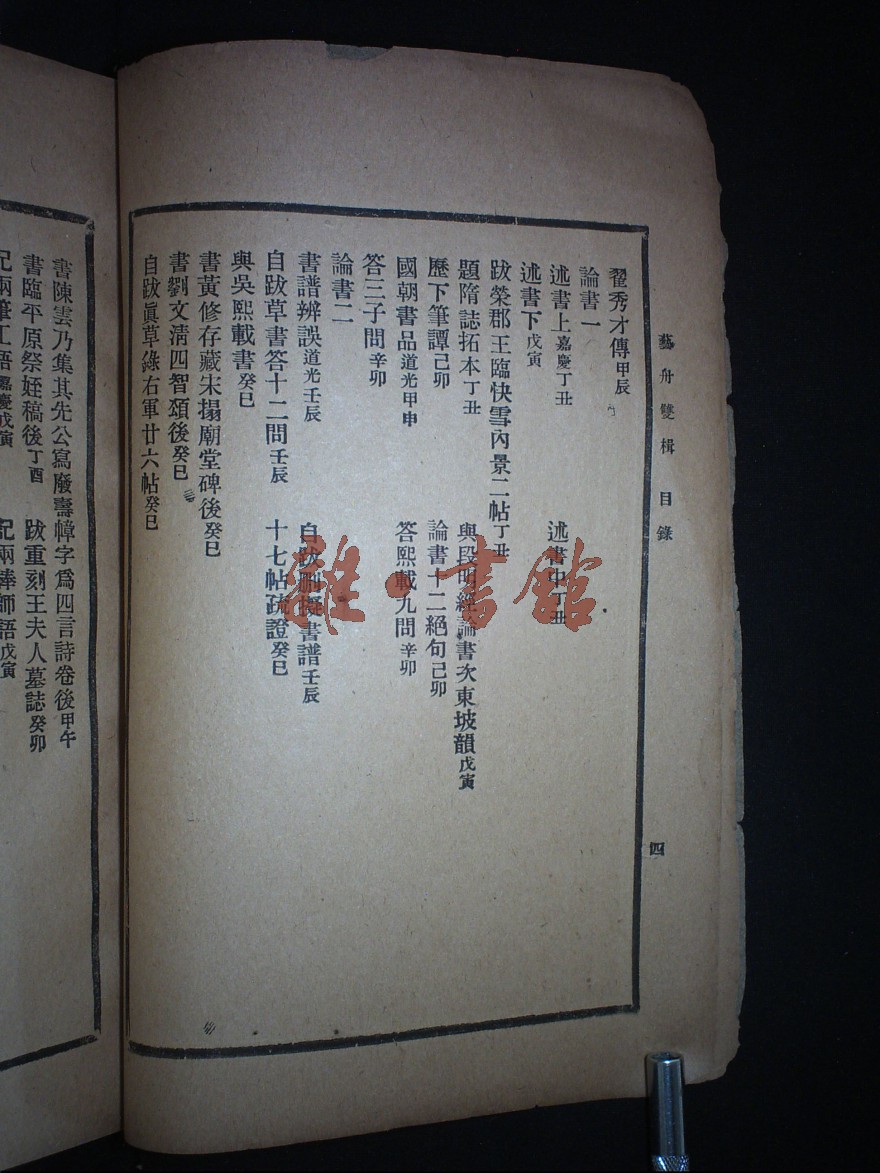 藝舟雙楫 目錄
四
翟秀才傳甲辰
論書一
述書上嘉慶丁丑 述書中丁丑
述書下戊寅
跋榮郡王臨快雪內景二帖丁丑
題隋誌拓本丁丑 與段明經論書次東坡韻戊寅
歷下筆譚己卯 論書十二絕句己卯
國朝書品道光甲申 答熙載九問辛卯
答三子問辛卯
論書二
書譜辨誤道光壬辰 自跋刪擬書譜壬辰
自跋草書答十二問壬辰 十七帖疏證癸巳
與吳熙載書癸巳
書黃修存藏宋搨廟堂碑後癸巳
書劉文淸四智頌後癸巳
自跋眞草錄右軍廿六帖癸巳
書陳雲乃集其先公寫廢壽幛字爲四言詩卷後甲午
書臨平原祭姪稿後丁酉 跋重刻王夫人墓誌癸卯
記兩筆工語嘉慶戊寅 記兩棒師語戊寅
雜·書館